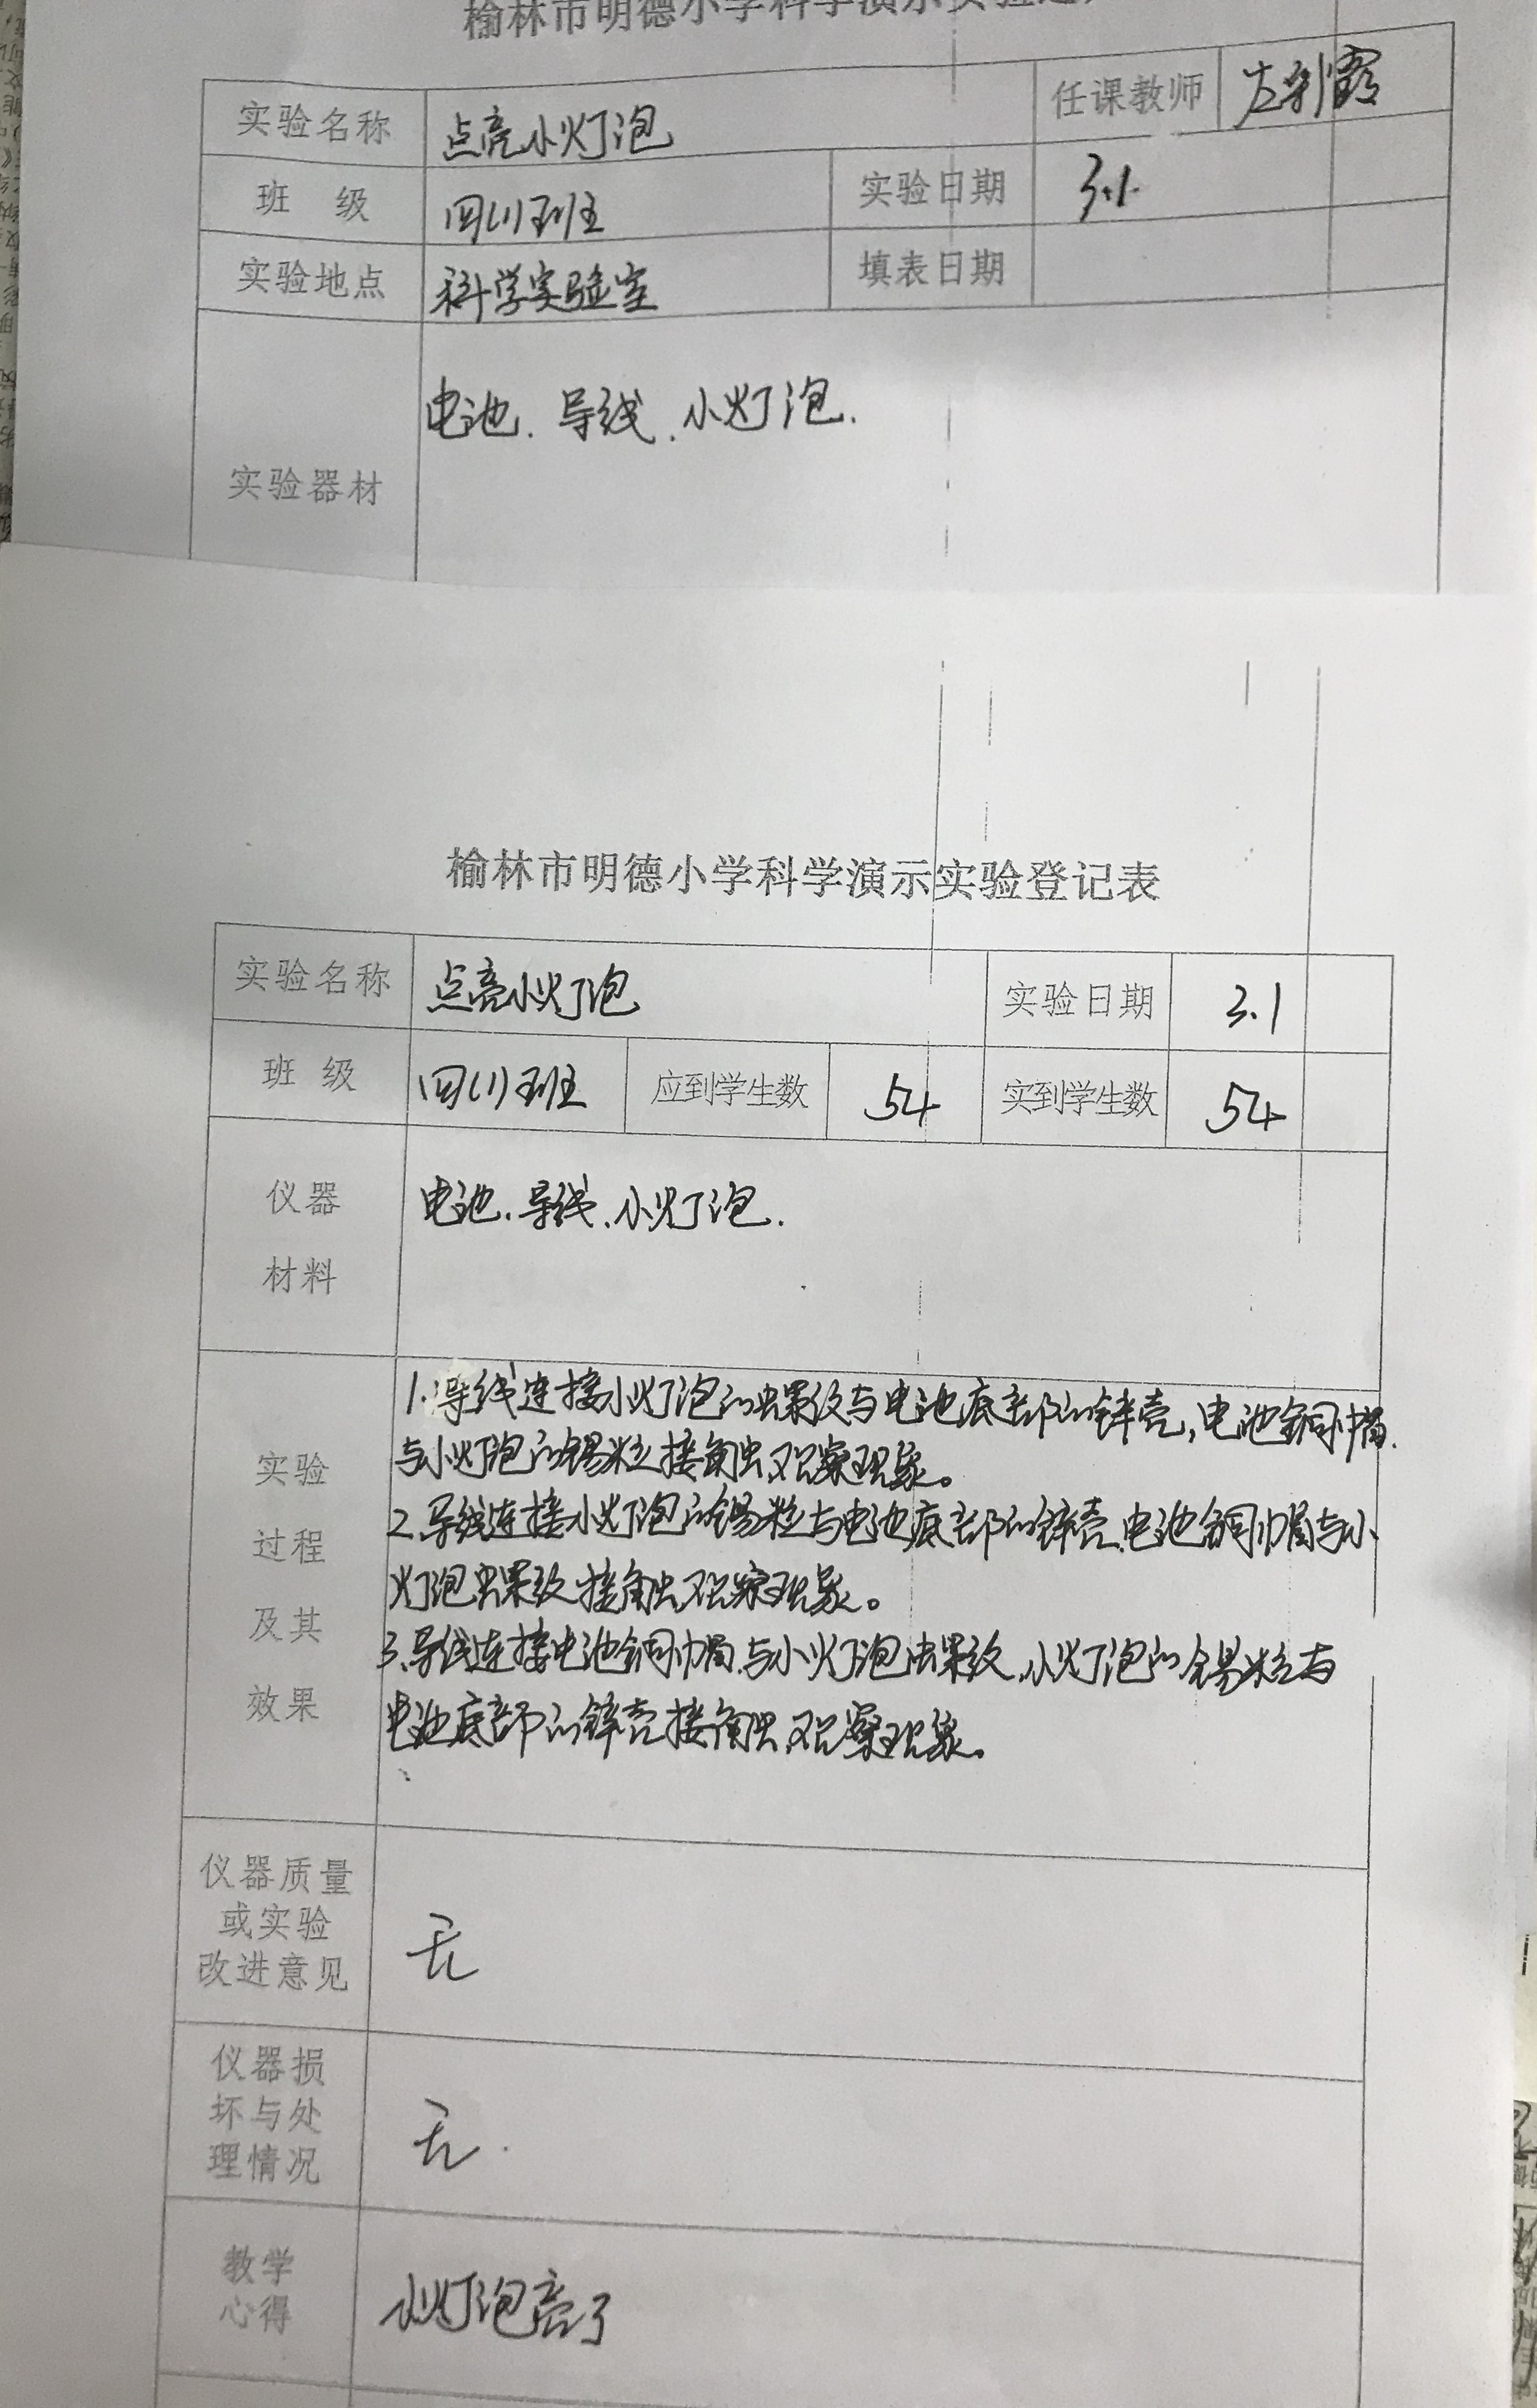 榆林市明德小学科学演示实验
实验名称 点亮小灯泡 任课教师
班 级 四(1)班 实验日期 3.1
实验地点 科学实验室 填表日期
电池、导线、小灯泡.
实验器材
榆林市明德小学科学演示实验登记表
实验名称 点亮小灯泡 实验日期 3.1
班 级 四(1)班 应到学生数 54 实到学生数 54
仪器 电池、导线、小灯泡.
材料
实验
过程
及其
效果
1.导线连接小灯泡的螺纹与电池底部的锌壳,电池铜帽
与小灯泡的锡粒接触,观察现象。
2.导线连接小灯泡的锡粒与电池底部的锌壳,电池铜帽与小
灯泡螺纹接触,观察现象。
3.导线连接电池铜帽与小灯泡螺纹,小灯泡的锡粒与
电池底部的锌壳接触,观察现象。
仪器质量
或实验
改进意见
无
仪器损
坏与处
理情况
无.
教学
心得
小灯泡亮了